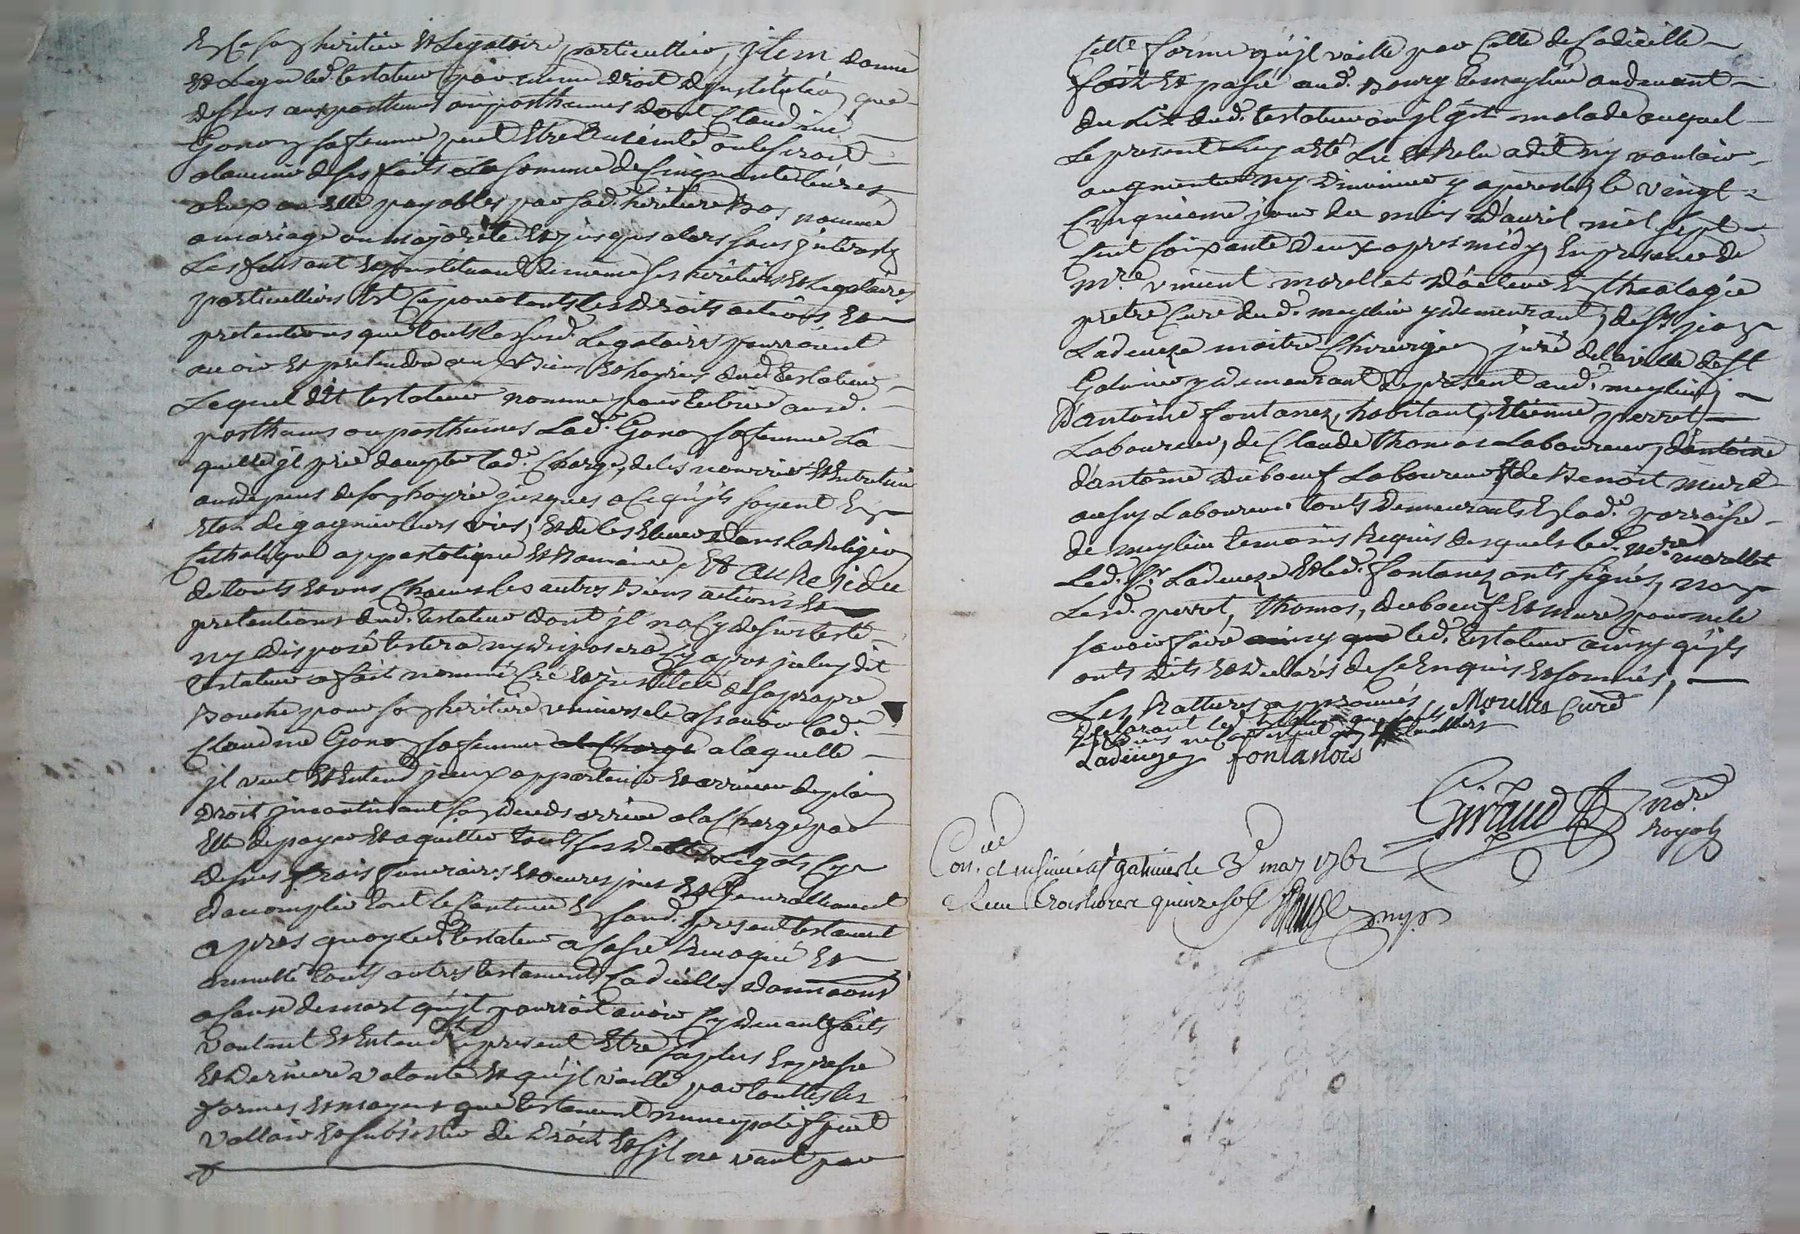 En ce son heritier et Legataire particullier, jtem donne
et Legue led. testateur par meme droit dynstitution que
dessus aux posthume ou posthumes dont Claudine
Gonon sa femme peut Etre Enceinte ou le seroit
alavenir de ses faits a la somme de Cinquante livres
payables par sad. heritiere Bas nommé
a mariage ou majorité et jusques alors sans jnterests
Les faisant et jnstituant de meme ses heritiers et Legataires
particulliers Et Ce pour touts les droits actions et
pretentions que touts les susd. Legataires pourroient
avoir et pretendre aux Biens et hoyries dud. testateur
Lequel dit testateur nomme pour tutrice ausd.
posthumes ou posthumes Lad. Gonon sa femme La
quelle jl prie dacepter lad. Charge, de les nourrir et Entretenir
aux depens de son hoyrie jusques a ce qu'jls soyent En
Etat de gagner leurs vies, et de les Elever dans la Religion
Catholique appostolique et Romaine, Et au Residu
de touts et uns Chacuns les autres Biens actions et
pretentions dud. testateur dont jl na cy dessus testé
ny disposé testera ny disposera cy apres jceluy dit
testateur a fait nommé Créé et jnstitué de sa propre
Bouche pour son heritiere universele assavoir lad.
Claudine Gonon sa femme a laquelle
jl veut et Entend jceux appartenir et arriver de plain
Droit jncontinant son deceds arrivé a la Charge par
Elle de payer et aquitter touts ses dettes Legats Cy
dessus frais funeraires et oeuvres pies et Generallement
daccomplir tout le Contenu En sond. present testament
apres quoy led. testateur a Cassé Revoqué et
annullé touts autres testaments Codicilles donnaons
a cause de mort qu'jl pourroit avoir Cy devant faits
Voulant et Entend le present Etre sa plus Expresse
et derniere volonté et qu'jl vaille par touttes les
formes et moyens que testament nuncupatif peut
Valloir et subsister de droit et s'jl ne vaut par
Cette forme qu'jl vaille par Celle de Codicille
fait et passé aud. Bourg de meylieu au devant
du Lit dud. testateur ou jl git malade auquel
Le present Luy a été Lu et Relu a dit ny vouloir
augmenter ny diminuer y apresdit le vingt
Cinquieme jour du mois d'avril mil sept
cent soixante deux apres midy, En presence de
mre. vincent morellet Docteur En theologie
pretre Curé dud. meylieu y demeurant, de sr. jean
Ladeveze maitre Chirurgien juré de la ville de st
Galmier y demeurant de present aud. meylieu,
D'antoine fontanez, habitant, Etienne perret
Laboureur, de Claude thomas Laboureur,
d'antoine Duboeuf Laboureur et de Benoit mure
aussy Laboureur touts demeurants En lad. parroisse
de meylieu temoins Requis desquels led. mre. morellet
Led. sr. Ladeveze et led. fontanez ont signés, non
Lesd. perret, thomas, duboeuf et mure pour ne le
savoir faire led. testateur ainsy qu'jls
ont dits et declarés de Ce Enquis et sommés,
Les Rattures approuvés
Ladeveze fontanois
Giraud nore.
Royal
Con. et insinué a st galmier le 3e may 1762
Reçu trois livres quinze sols